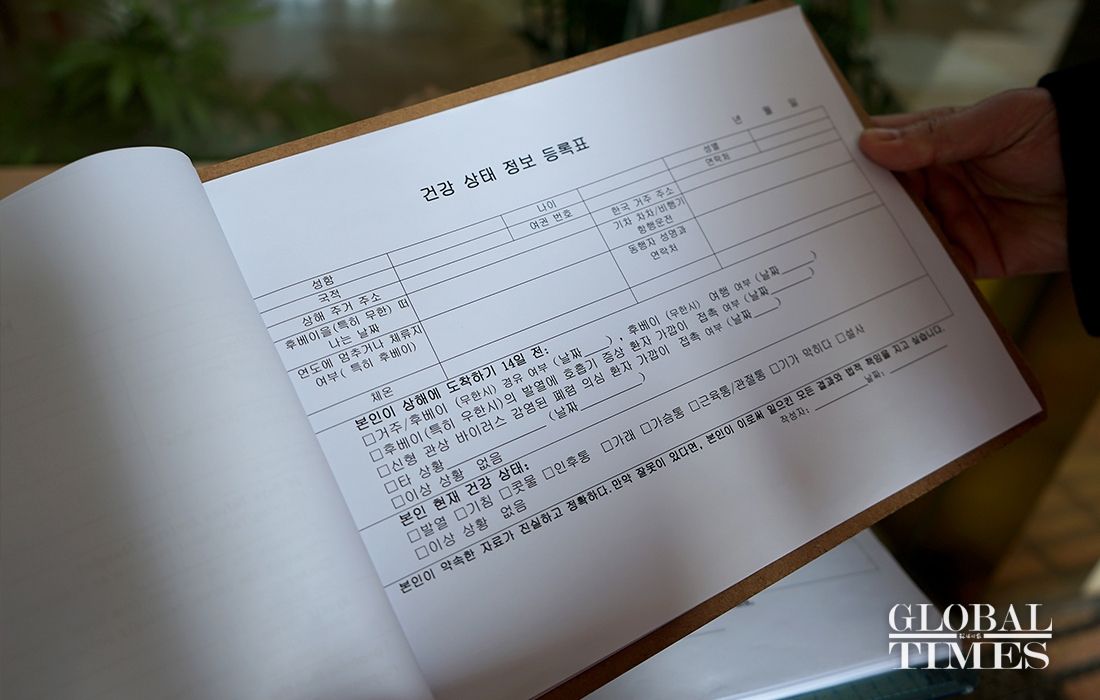 년 월 일
건강 상태 정보 등록표
성함 나이 성별
국적 여권 번호 연락처
상해 주거 주소 한국 거주 주소
후베이을(특히 무한) 떠나는 날짜 기차 차차/비행기 항행운전
연도에 멈추거나 체류지 여부( 특히 후베이) 동행자 성명과 연락처
체온
본인이 상해에 도착하기 14일 전:
□거주/후베이 (무한시) 경유 여부 (날짜____) , 후베이 (무한시) 여행 여부 (날짜____)
□후베이(특히 우한시)의 발열에 호흡기 증상 환자 가깝이 접촉 여부 (날짜____)
□신형 관상 바이러스 감염된 폐렴 의심 환자 가깝이 접촉 여부 (날짜____)
□타 상황__________ (날짜__________)
□이상 상황 없음
본인 현재 건강 상태:
□발열 □기침 □콧물 □인후통 □가래 □가슴통 □근육통/관절통 □기가 막히다 □설사
□이상 상황 없음
본인이 약속한 자료가 진실하고 정확하다. 만약 잘못이 있다면, 본인이 이로써 일으킨 모든 결과와 법적 책임을 지고 싶습니다.
작성자: __________ 날짜: __________
GLOBAL
TIMES